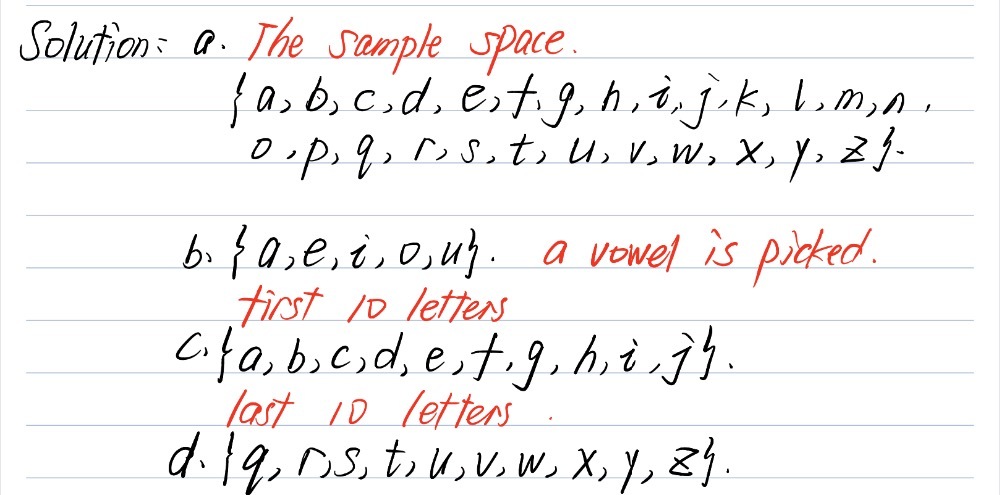 Solution: a. The sample space.
{a, b, c, d, e, f, g, h, i, j, k, l, m, n,
o, p, q, r, s, t, u, v, w, x, y, z}.
b. {a, e, i, o, u}. a vowel is picked.
first 10 letters
c. {a, b, c, d, e, f, g, h, i, j}.
last 10 letters.
d. {q, r, s, t, u, v, w, x, y, z}.